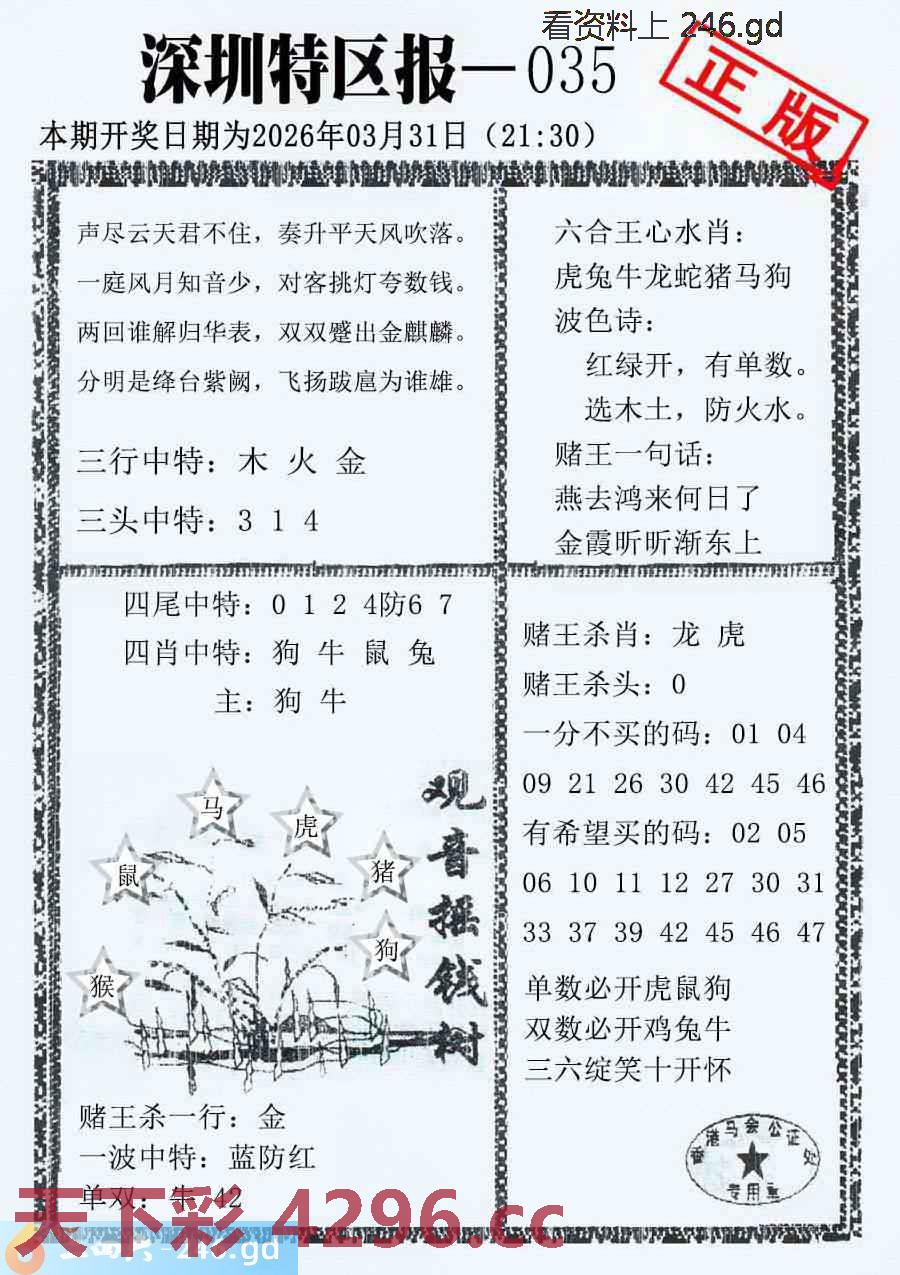 看资料上 246.gd
深圳特区报—035
正版
本期开奖日期为2026年03月31日（21:30）
声尽云天君不住，奏升平天风吹落。
一庭风月知音少，对客挑灯夸数钱。
两回谁解归华表，双双蹙出金麒麟。
分明是绛台紫阙，飞扬跋扈为谁雄。
三行中特：木 火 金
三头中特：3 1 4
六合王心水肖：
虎兔牛龙蛇猪马狗
波色诗：
红绿开，有单数。
选木土，防火水。
赌王一句话：
燕去鸿来何日了
金霞昕昕渐东上
四尾中特：0 1 2 4防6 7
四肖中特：狗 牛 鼠 兔
主：狗 牛
马
虎
鼠
猪
狗
猴
观音摇钱树
赌王杀一行：金
一波中特：蓝防红
单双：牛 42
赌王杀肖：龙 虎
赌王杀头：0
一分不买的码：01 04
09 21 26 30 42 45 46
有希望买的码：02 05
06 10 11 12 27 30 31
33 37 39 42 45 46 47
单数必开虎鼠狗
双数必开鸡兔牛
三六绽笑十开怀
香港马会公证处
专用章
天下彩 4296.cc
246.gd